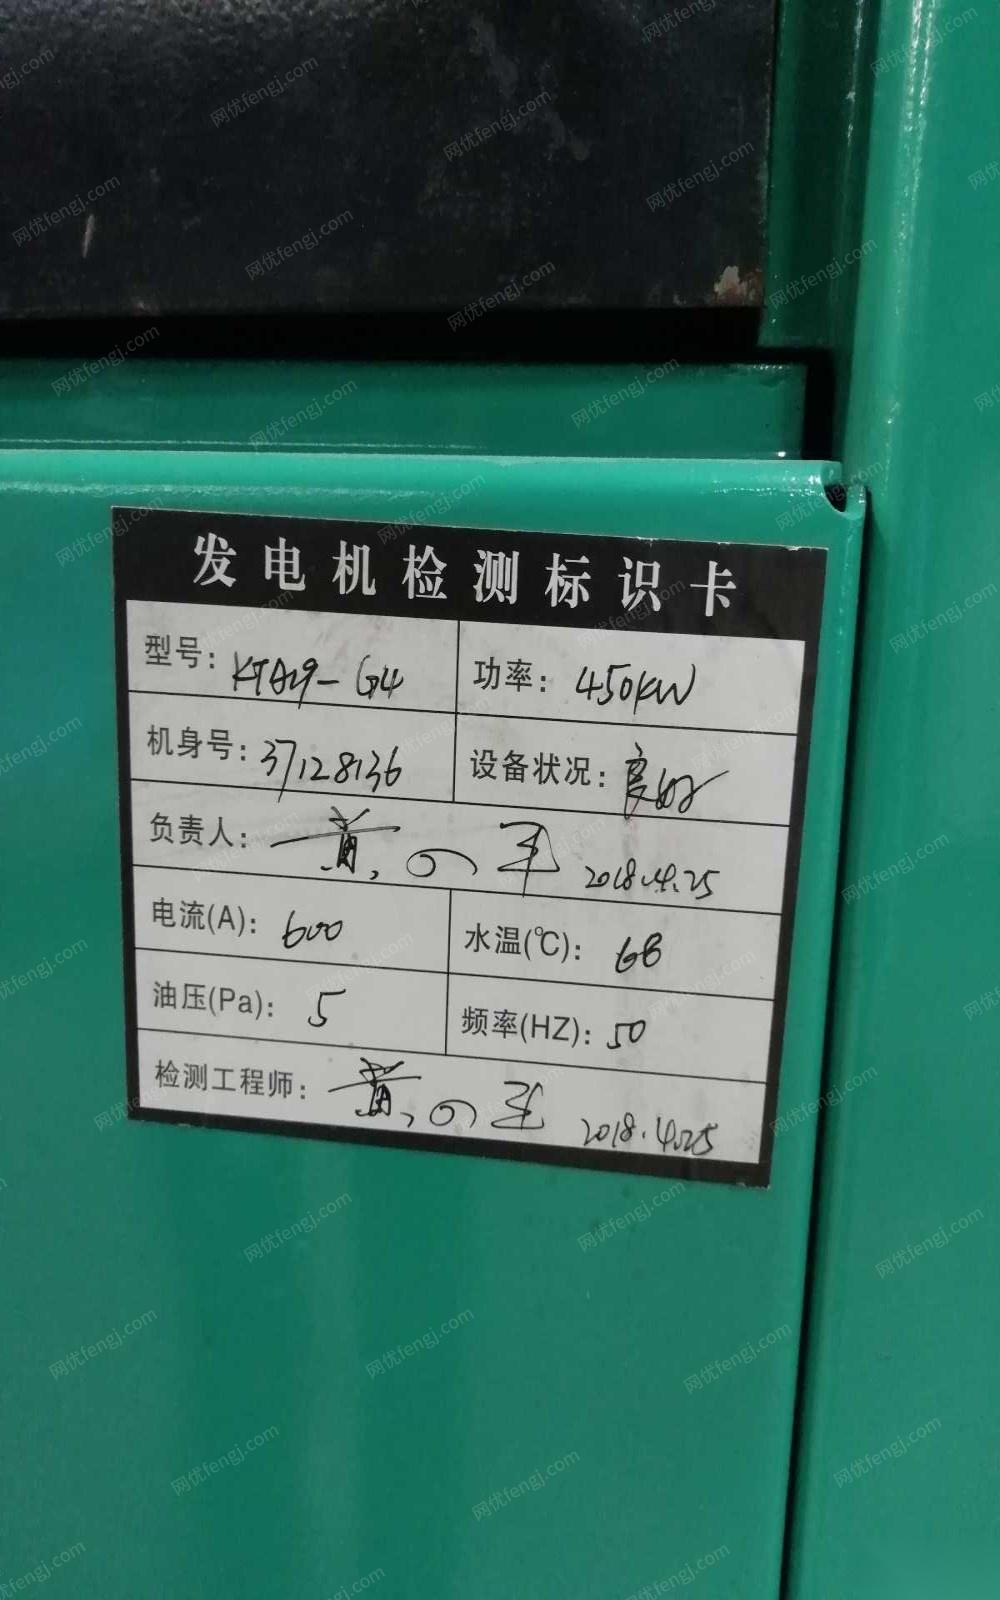 发电机检测标识卡
型号: KTA19-G4 功率: 450KW
机身号: 37128136 设备状况: 良好
负责人: 黄 2018.4.25
电流(A): 600 水温(℃): 68
油压(Pa): 5 频率(HZ): 50
检测工程师: 黄 2018.4.25
网优fengj.com